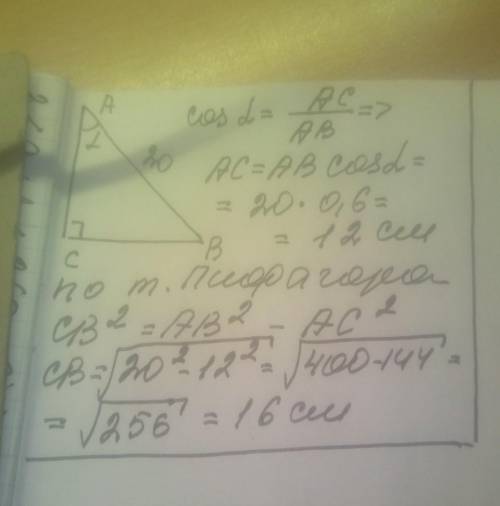 A
α
20
C
B
cos α = AC/AB =>
AC = AB cos α =
= 20 · 0,6 =
= 12 см
по т. Пифагора
CB² = AB² - AC²
CB = √20² - 12² = √400-144 =
= √256 = 16 см